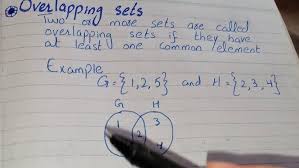 Overlapping sets
Two or more sets are called
overlapping sets if they have
at least one common element
Example
G={1,2,5} and H={2,3,4}
G H
1 2 3
4